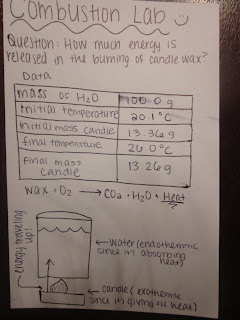 Combustion Lab
Question: How much energy is
released in the burning of candle wax?
Data
mass of H2O 100.0 g
Initial temperature 20.1°C
initial mass candle 13.36 g
final temperature 26.0°C
Final mass candle 13.26g
wax + O2 → CO2 + H2O + Heat
energy traveling up!
← Water (endothermic
since it's absorbing
heat)
← candle (exothermic
since it's giving off heat)